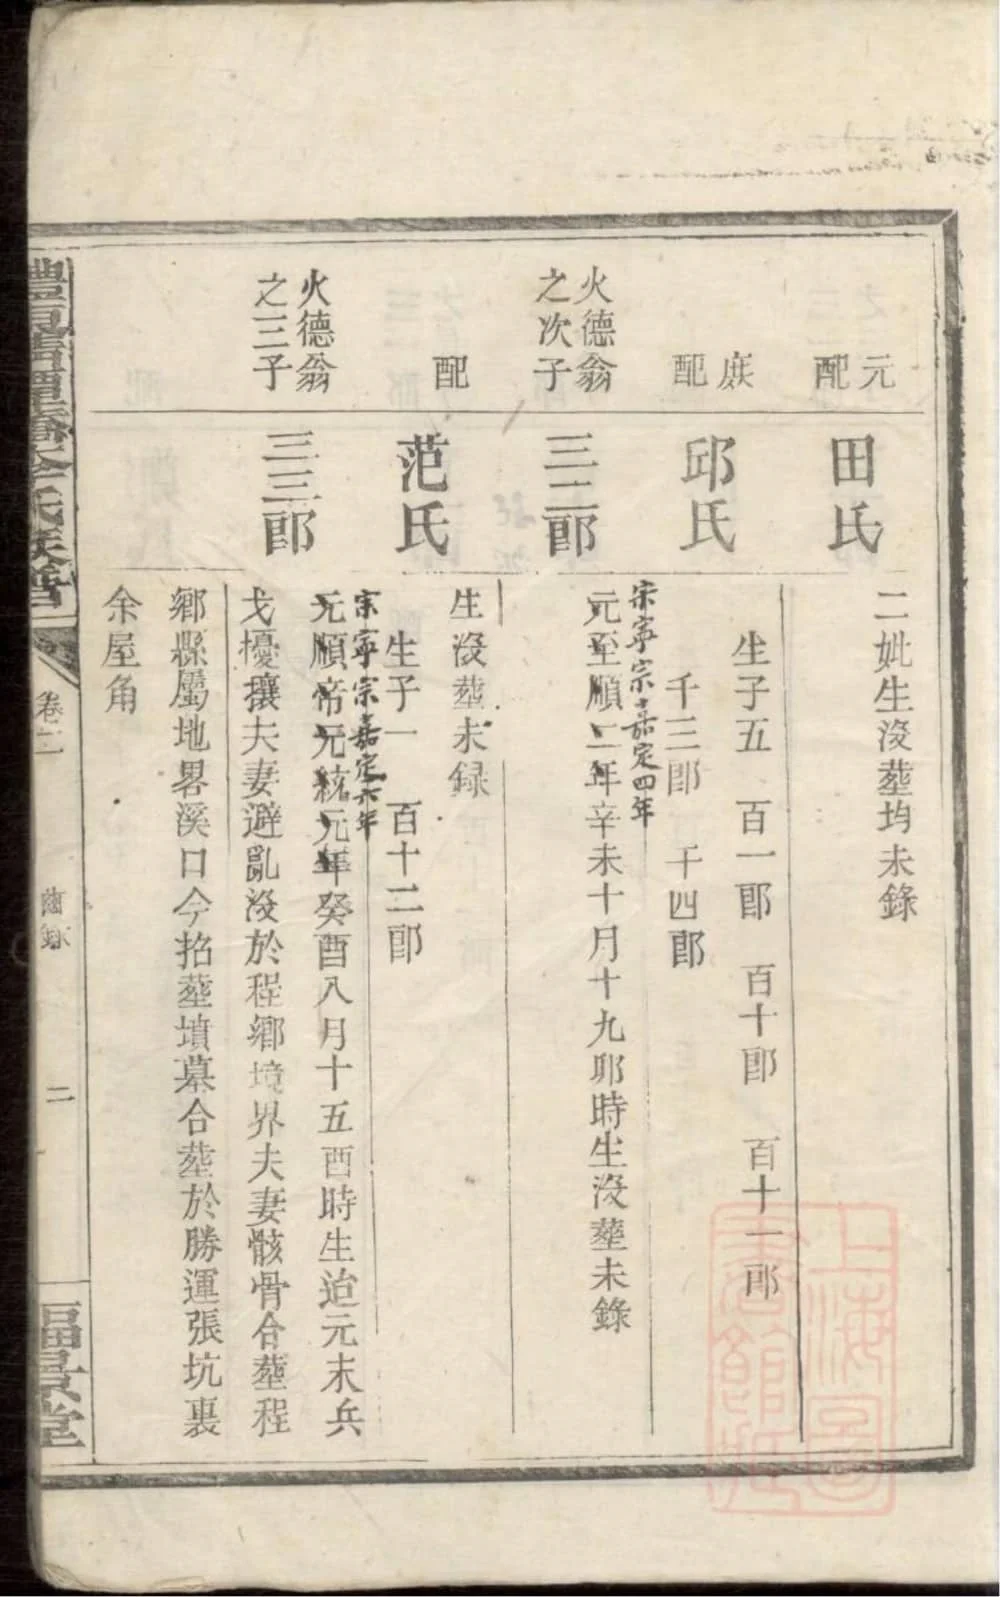 元
配
田氏
二妣生沒塟均未錄
庻
配
邱氏
生子五 百一郎 百十郎 百十一郎
千三郎 千四郎
火德翁
之次子
三二郎
宋寧宗嘉定四年
元至順二年辛未十月十九卯時生沒塟未錄
配
范氏
生沒塟未録
生子一 百十二郎
火德翁
之三子
三三郎
宋寧宗嘉定六年
元順帝元統元年癸酉八月十五酉時生迨元末兵
戈擾攘夫妻避亂沒於程鄉境界夫妻骸骨合塟程
鄉縣屬地畧溪口今招塟墳墓合塟於勝運張坑裏
余屋角
李氏族譜
卷二
二
福景堂
上海圖
書館藏